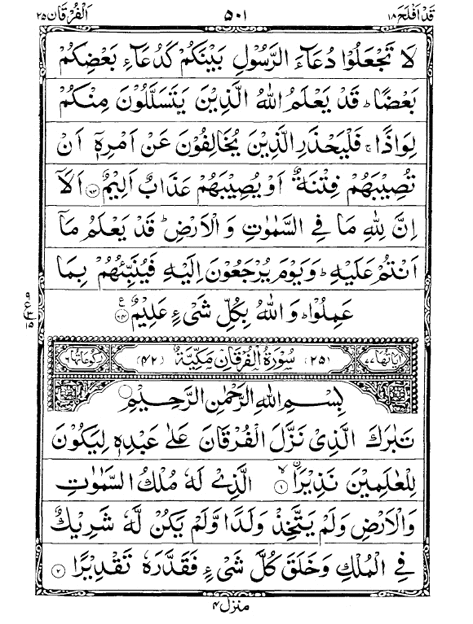 قد افلح ١٨ ٥٠١ الفرقان ٢٥
لَا تَجْعَلُوْا دُعَآءَ الرَّسُوْلِ بَيْنَكُمْ كَدُعَآءِ بَعْضِكُمْ
بَعْضًا ؕ قَدْ يَعْلَمُ اللّٰهُ الَّذِيْنَ يَتَسَلَّلُوْنَ مِنْكُمْ
لِوَاذًا ۚ فَلْيَحْذَرِ الَّذِيْنَ يُخَالِفُوْنَ عَنْ اَمْرِهٖۤ اَنْ
تُصِيْبَهُمْ فِتْنَةٌ اَوْ يُصِيْبَهُمْ عَذَابٌ اَلِيْمٌ ﴿٦٣﴾ اَلَاۤ
اِنَّ لِلّٰهِ مَا فِي السَّمٰوٰتِ وَ الْاَرْضِ ؕ قَدْ يَعْلَمُ مَاۤ
اَنْتُمْ عَلَيْهِ ؕ وَ يَوْمَ يُرْجَعُوْنَ اِلَيْهِ فَيُنَبِّئُهُمْ بِمَا
عَمِلُوْا ؕ وَ اللّٰهُ بِكُلِّ شَيْءٍ عَلِيْمٌ ﴿٦٤﴾ ع
اٰيَاتُهَا ٧٧ (٢٥) سُوْرَةُ الْفُرْقَانِ مَكِّيَّةٌ (٤٢) رُكُوْعَاتُهَا ٦
بِسْمِ اللّٰهِ الرَّحْمٰنِ الرَّحِيْمِ
تَبٰرَكَ الَّذِيْ نَزَّلَ الْفُرْقَانَ عَلٰى عَبْدِهٖ لِيَكُوْنَ
لِلْعٰلَمِيْنَ نَذِيْرًا ۙ﴿١﴾ الَّذِيْ لَهٗ مُلْكُ السَّمٰوٰتِ
وَالْاَرْضِ وَلَمْ يَتَّخِذْ وَلَدًا وَّلَمْ يَكُنْ لَّهٗ شَرِيْكٌ
فِي الْمُلْكِ وَخَلَقَ كُلَّ شَيْءٍ فَقَدَّرَهٗ تَقْدِيْرًا ﴿٢﴾
منزل ٤